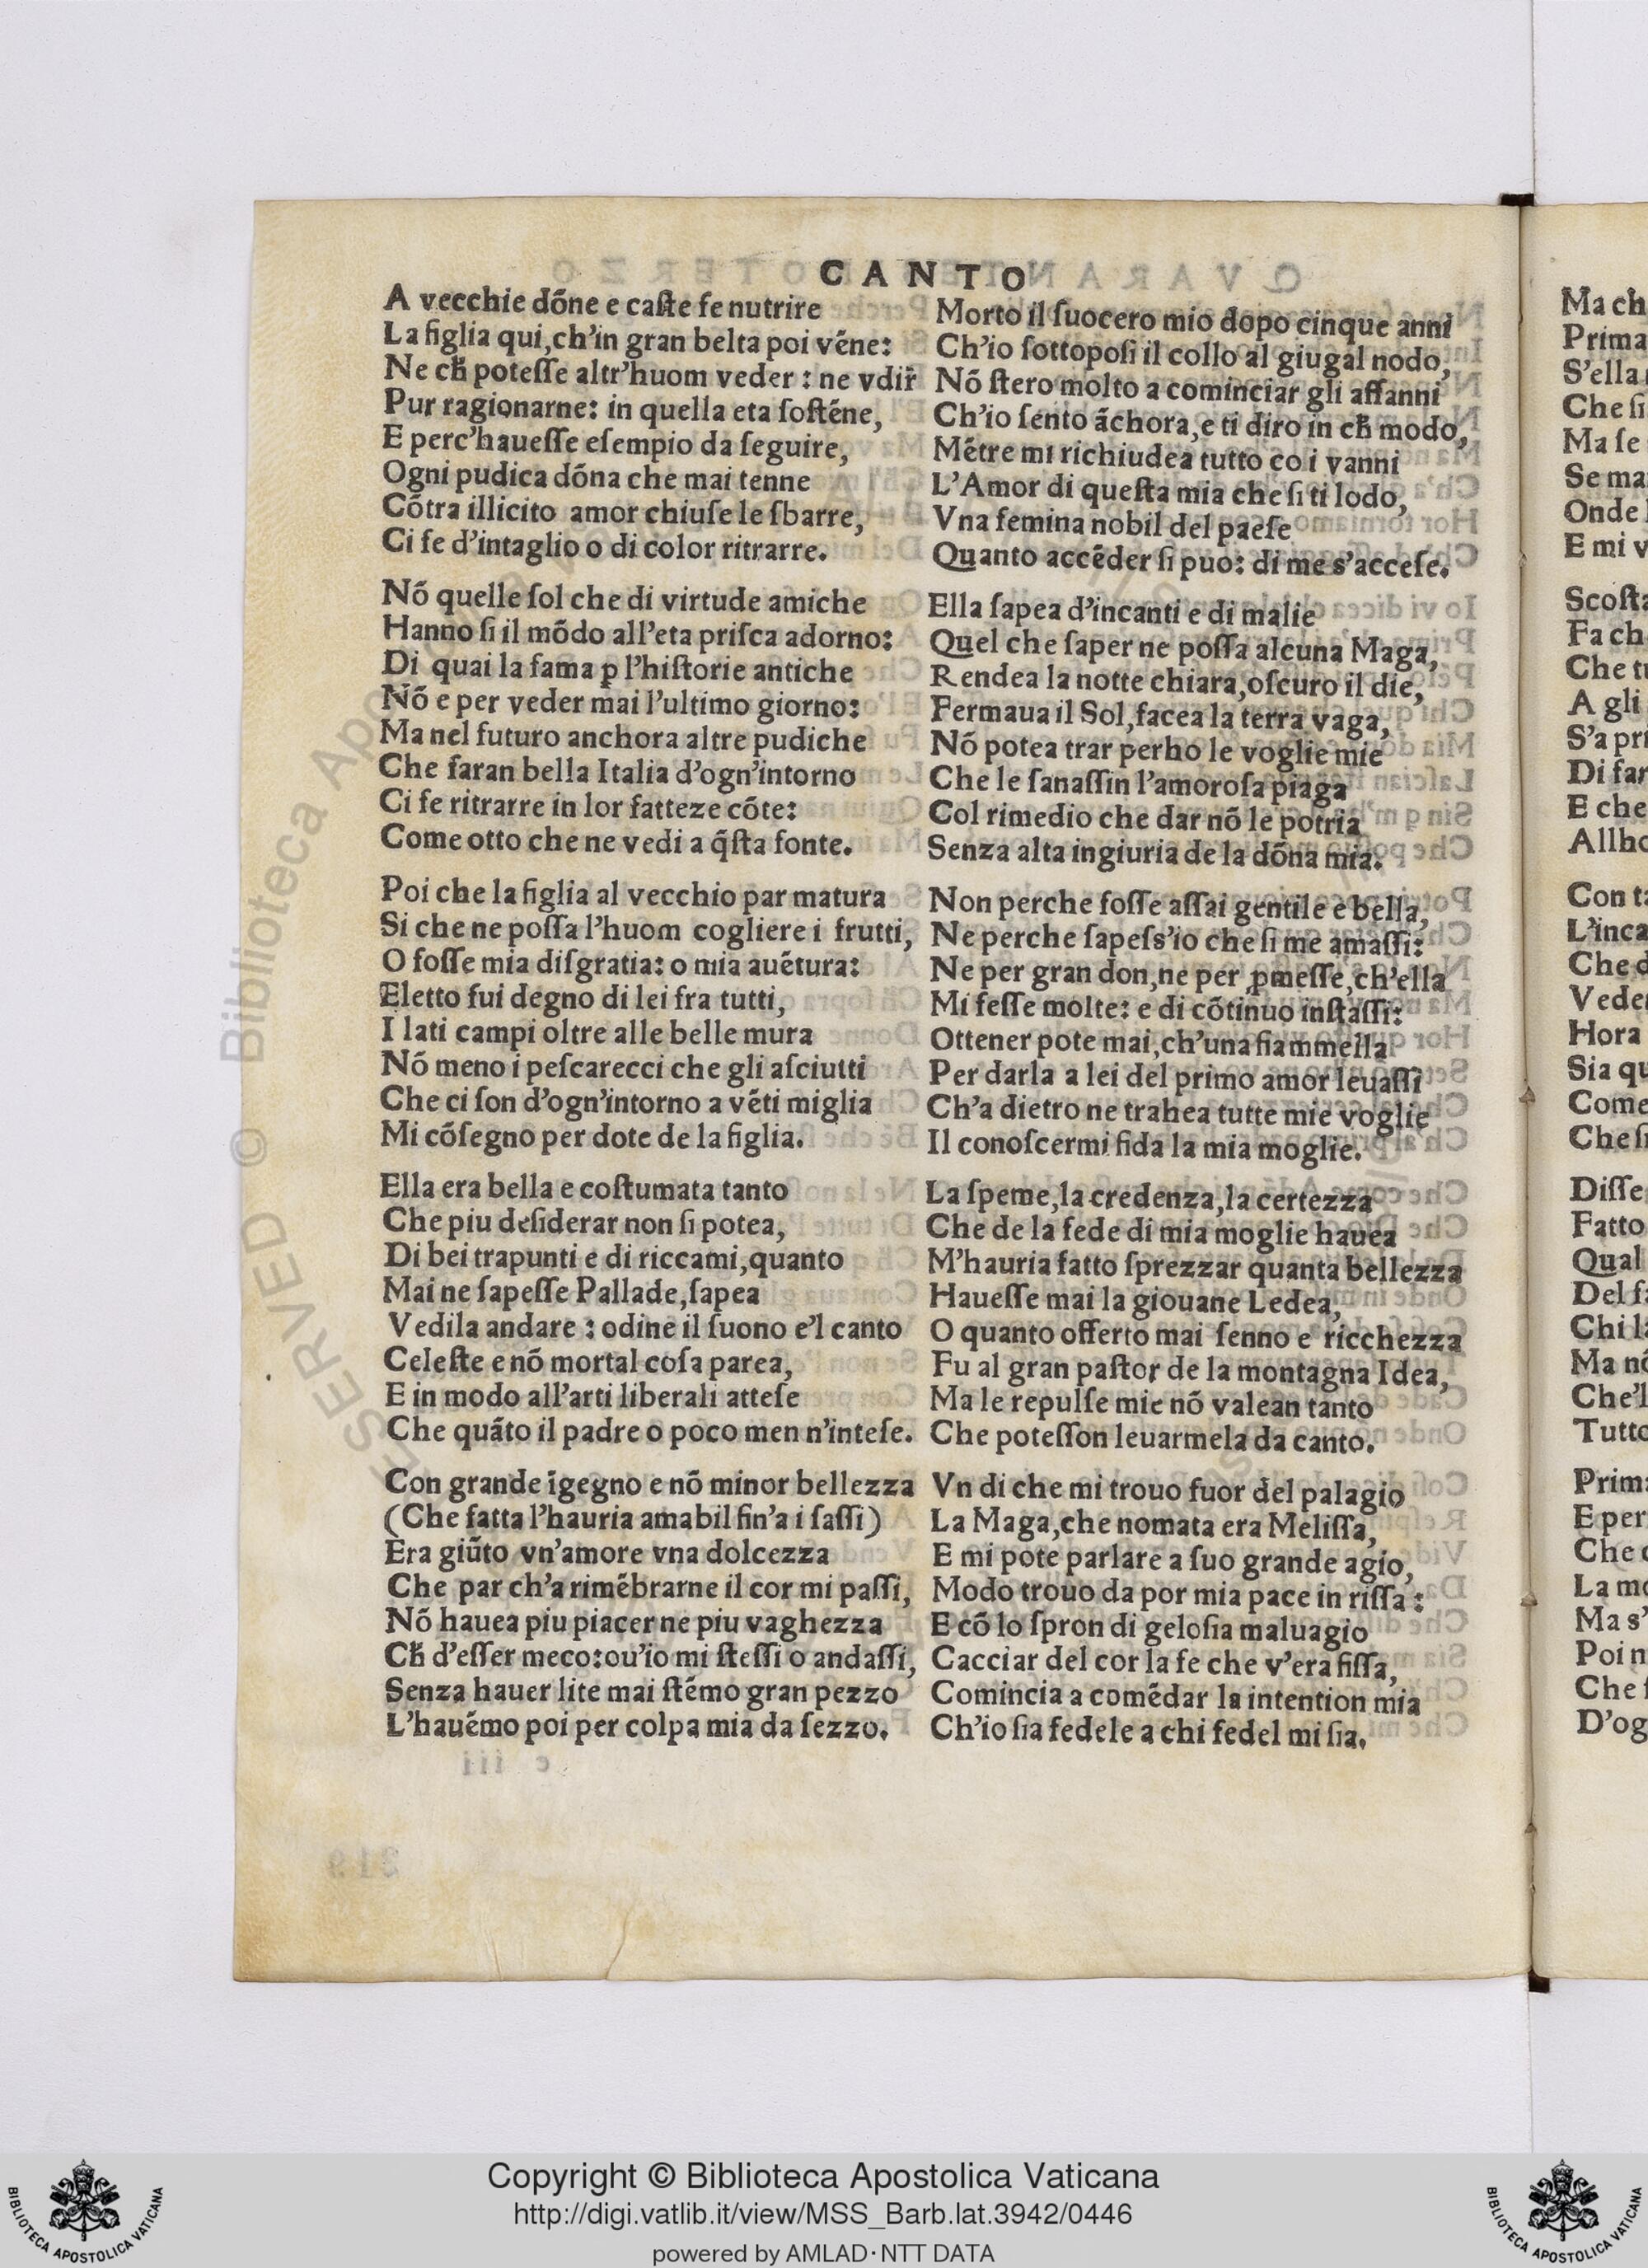 CANTO
A vecchie dōne e caſte fe nutrire
La figlia qui, ch'in gran belta poi vēne:
Ne cħ poteſſe altr'huom veder : ne vdir̃
Pur ragionarne: in quella eta ſoſtēne,
E perc'haueſſe eſempio da ſeguire,
Ogni pudica dōna che mai tenne
Cōtra illicito amor chiuſe le ſbarre,
Ci fe d'intaglio o di color ritrarre.
Nō quelle ſol che di virtude amiche
Hanno ſi il mōdo all'eta priſca adorno:
Di quai la fama ꝑ l'hiſtorie antiche
Nō e per veder mai l'ultimo giorno:
Ma nel futuro anchora altre pudiche
Che faran bella Italia d'ogn'intorno
Ci fe ritrarre in lor fatteze cōte:
Come otto che ne vedi a q̃ſta fonte.
Poi che la figlia al vecchio par matura
Si che ne poſſa l'huom cogliere i frutti,
O foſſe mia diſgratia: o mia auētura:
Eletto fui degno di lei fra tutti,
I lati campi oltre alle belle mura
Nō meno i peſcarecci che gli aſciutti
Che ci ſon d'ogn'intorno a vēti miglia
Mi cōſegno per dote de la figlia.
Ella era bella e coſtumata tanto
Che piu deſiderar non ſi potea,
Di bei trapunti e di riccami, quanto
Mai ne ſapeſſe Pallade, ſapea
Vedila andare : odine il ſuono e'l canto
Celeſte e nō mortal coſa parea,
E in modo all'arti liberali atteſe
Che quāto il padre o poco men n'inteſe.
Con grande īgegno e nō minor bellezza
(Che fatta l'hauria amabil fin'a i ſaſſi)
Era giūto vn'amore vna dolcezza
Che par ch'a rimēbrarne il cor mi paſſi,
Nō hauea piu piacer ne piu vaghezza
Cħ d'eſſer meco: ou'io mi ſteſſi o andaſſi,
Senza hauer lite mai ſtēmo gran pezzo
L'hauēmo poi per colpa mia da ſezzo.
Morto il ſuocero mio dopo cinque anni
Ch'io ſottopoſi il collo al giugal nodo,
Nō ſtero molto a cominciar gli affanni
Ch'io ſento āchora, e ti diro in cħ modo,
Mētre mi richiudea tutto co i vanni
L'Amor di queſta mia che ſi ti lodo,
Vna femina nobil del paeſe
Quanto accēder ſi puo: di me s'acceſe.
Ella ſapea d'incanti e di malie
Quel che ſaper ne poſſa alcuna Maga,
Rendea la notte chiara, oſcuro il die,
Fermaua il Sol, facea la terra vaga,
Nō potea trar perho le voglie mie
Che le ſanaſſin l'amoroſa piaga
Col rimedio che dar nō le potria
Senza alta ingiuria de la dōna mia.
Non perche foſſe aſſai gentile e bella,
Ne perche ſapeſs'io che ſi me amaſſi:
Ne per gran don, ne per ꝓmeſſe, ch'ella
Mi feſſe molte: e di cōtinuo inſtaſſi:
Ottener pote mai, ch'una fiammella
Per darla a lei del primo amor leuaſſi
Ch'a dietro ne trahea tutte mie voglie
Il conoſcermi fida la mia moglie.
La ſpeme, la credenza, la certezza
Che de la fede di mia moglie hauea
M'hauria fatto ſprezzar quanta bellezza
Haueſſe mai la giouane Ledea,
O quanto offerto mai ſenno e ricchezza
Fu al gran paſtor de la montagna Idea,
Ma le repulſe mie nō valean tanto
Che poteſſon leuarmela da canto.
Vn di che mi trouo fuor del palagio
La Maga, che nomata era Meliſſa,
E mi pote parlare a ſuo grande agio,
Modo trouo da por mia pace in riſſa :
E cō lo ſpron di geloſia maluagio
Cacciar del cor la fe che v'era fiſſa,
Comincia a comēdar la intention mia
Ch'io ſia fedele a chi fedel mi ſia.
Ma ch
Prima
S'ella
Che ſi
Ma ſe
Se ma
Onde
E mi v
Scoſta
Fa ch
Che tu
A gli
S'a pri
Di far
E che
Allho
Con ta
L'inca
Che d
Veder
Hora
Sia qu
Come
Che ſi
Diſſe
Fatto
Qual
Del fa
Chi la
Ma nō
Che'l
Tutto
Prima
E per
Che
La mo
Ma s'
Poi n
Che
D'og
Copyright © Biblioteca Apostolica Vaticana
http://digi.vatlib.it/view/MSS_Barb.lat.3942/0446
powered by AMLAD·NTT DATA
BIBLIOTECA APOSTOLICA VATICANA
BIBLIOTECA APOSTOLICA VATICANA